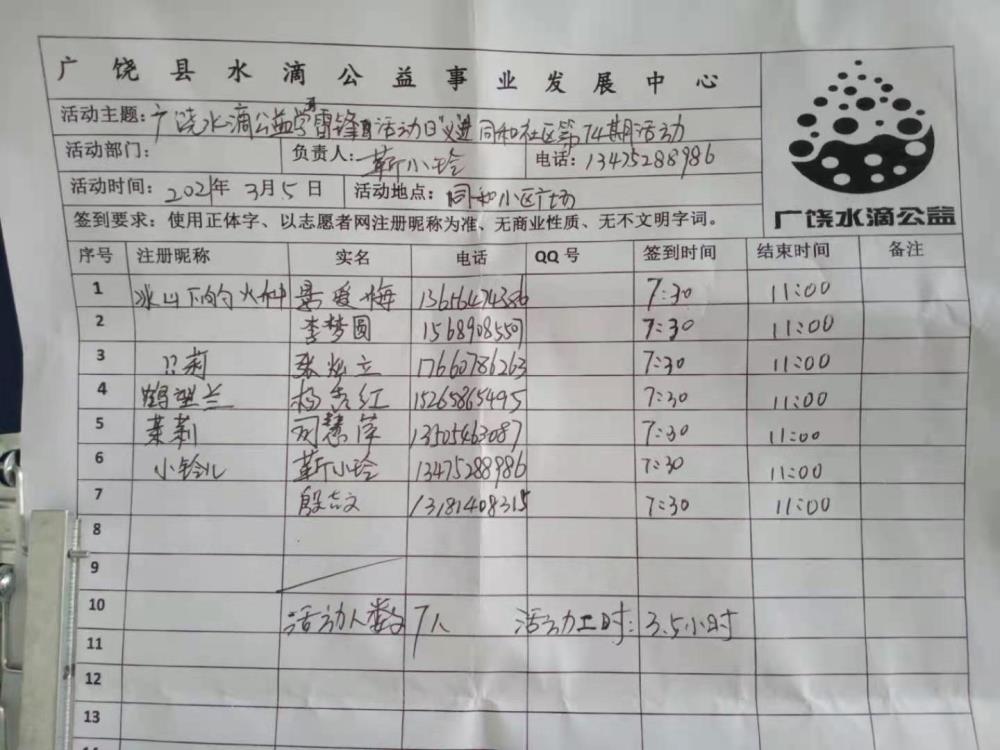 广饶县水滴公益事业发展中心
活动主题：广饶水滴公益学雷锋活动日"义进同和社区第74期活动
活动部门： 负责人：靳小玲 电话：13475288986
活动时间：2021年3月5日 活动地点：同和小区广场
广饶水滴公益
签到要求：使用正体字、以志愿者网注册昵称为准、无商业性质、无不文明字词。
序号 注册昵称 实名 电话 QQ号 签到时间 结束时间 备注
1 冰山下的火种 景爱梅 13656474386 7:30 11:00
2 李梦圆 15689085507 7:30 11:00
3 张 立 17660786263 7:30 11:00
4 鹤望兰 杨秀红 15265865495 7:30 11:00
5 茉莉 司慧萍 13505463087 7:30 11:00
6 小铃儿 靳小玲 13475288986 7:30 11:00
7 殷志文 13181408315 7:30 11:00
8
9
10 活动人数 7人 活动工时：3.5小时
11
12
13